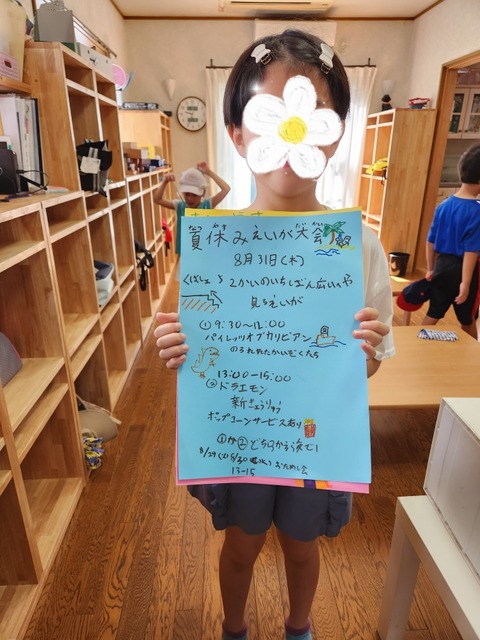 夏休みえいが大会
8月31日(木)
<ばしょ> 2かいのいちばん広いへや
見るえいが
① 9:30〜12:00
パイレーツオブカリビアン
のろわれたかいぞくたち
13:00〜15:00
②ドラエモン
新きょうりゅう
ポップコーンサービス有り
①か②どちらかえらんで!
8/29(火)8/30(水)おためし会
13-15